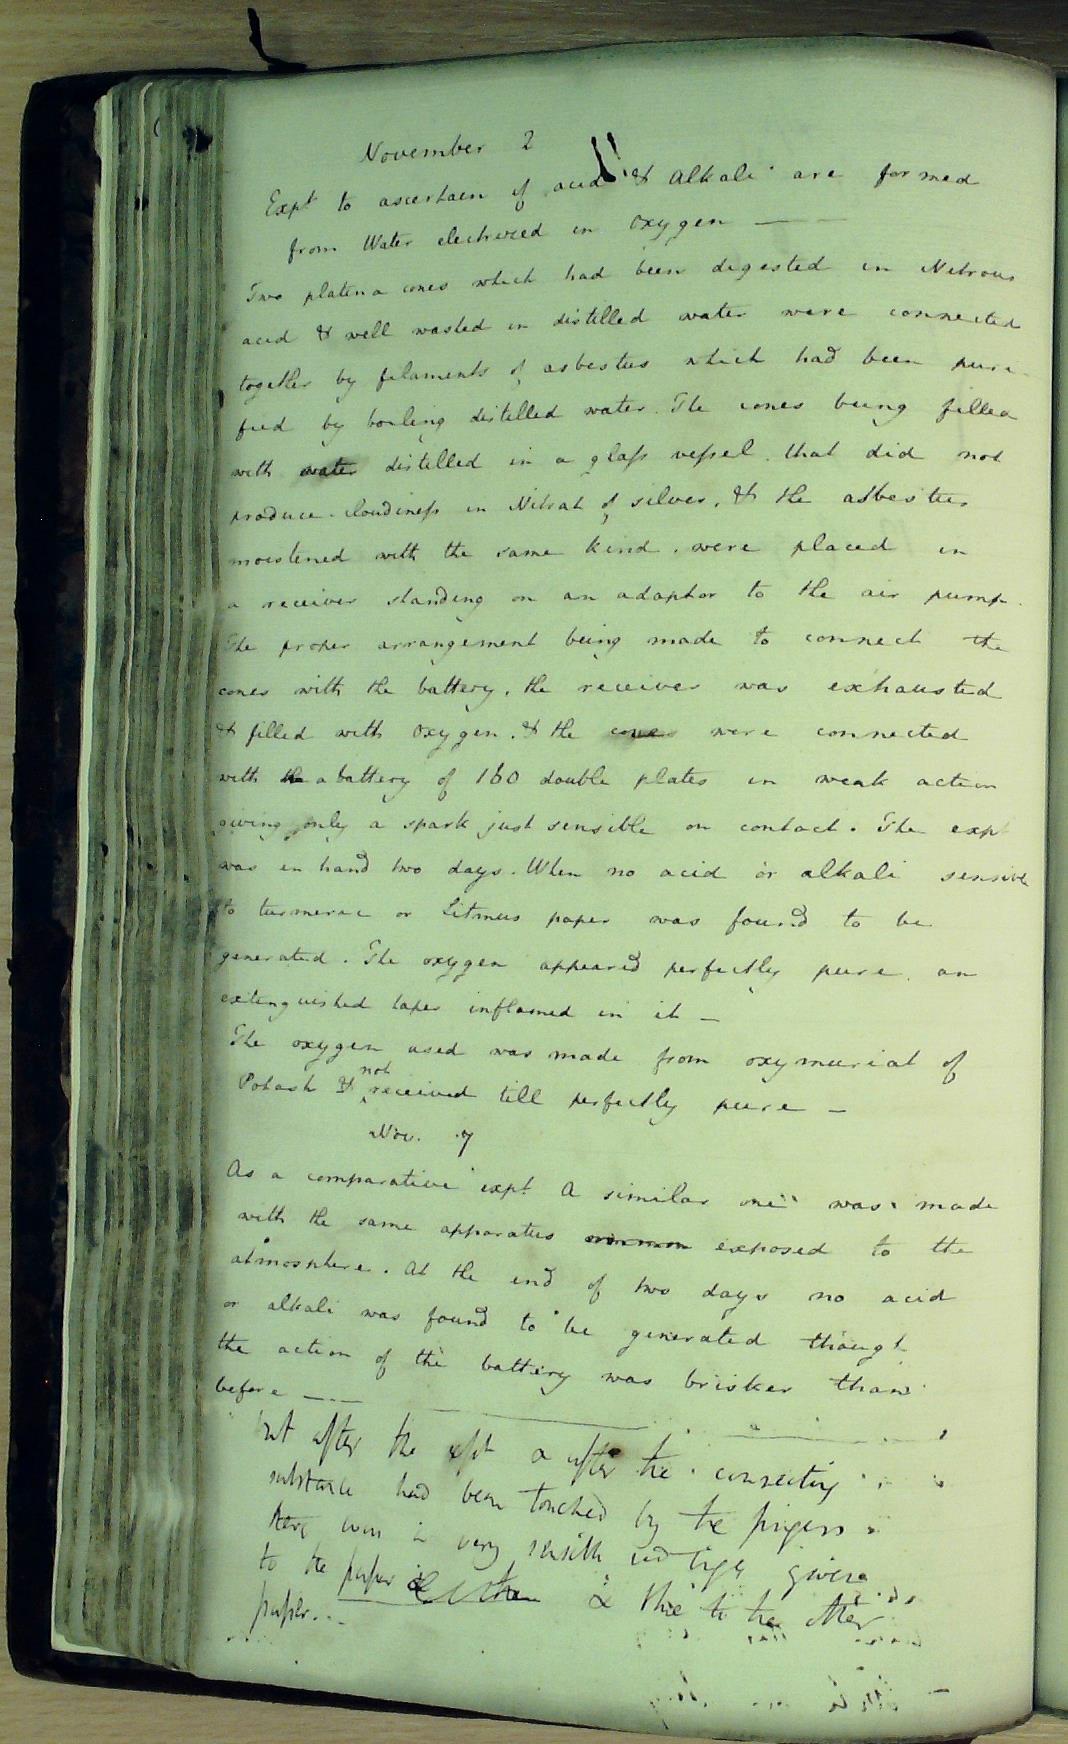 November 2
Expt to ascertain if acid & alkali are formed
from Water electrized in oxygen —
Two platina cones which had been digested in Nitrous
acid & well washed in distilled water were connected
together by filaments of asbestus which had been puri-
fied by boiling distilled water. The cones being filled
with water distilled in a glass vessel that did not
produce cloudiness in Nitrat of silver, & the asbestus
moistened with the same kind. were placed in
a receiver standing on an adaptor to the air pump.
The proper arrangement being made to connect the
cones with the battery, the receiver was exhausted
& filled with oxygen. & the cones were connected
with the a battery of 160 double plates in weak action
giving only a spark just sensible on contact. The expt
was in hand two days. When no acid or alkali sensible
to turmeric or Litmus paper was found to be
generated. The oxygen appeared perfectly pure. an
extinguished taper inflamed in it —
The oxygen used was made from oxymuriat of
Potash & not received till perfectly pure —
Nov. 7
As a comparative expt. A similar one was made
with the same apparatus exposed to the
atmosphere. At the end of two days no acid
or alkali was found to be generated though
the action of the battery was brisker than
before —
but after the expt a after the connecting
substance had been touched by the fingers
there was a very sensible red tinge given
to the paper & this to the other
paper.